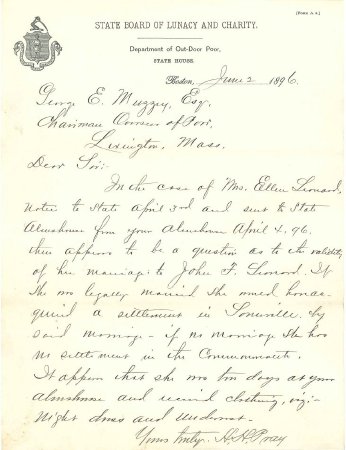 [Form A 4.]
STATE BOARD OF LUNACY AND CHARITY.
Department of Out-Door Poor,
STATE HOUSE.
Boston, June 2 1896
George E. Muzzey, Esq.
Chairman Overseers of Poor,
Lexington, Mass.
Dear Sir:-
In the case of Mrs. Ellen Leonard,
Notice to State April 3rd and sent to State
Almshouse from your Almshouse April 4, 96.
there appears to be a question as to the validity
of her marriage to John F. Leonard. If
she was legally married she owned,
quired a settlement in Somerville by
said marriage - if no marriage she has
no settlement in the Commonwealth.
It appears that she was ten days at your
almshouse and received clothing, viz:-
Night dress and undervest.
Yours truly, H. A. Pray